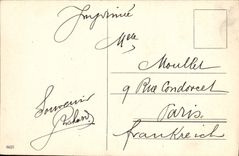 Imprimée
Mlle
Moullet
9 Rue Condorcet
Paris
Frankreich
Souvenir